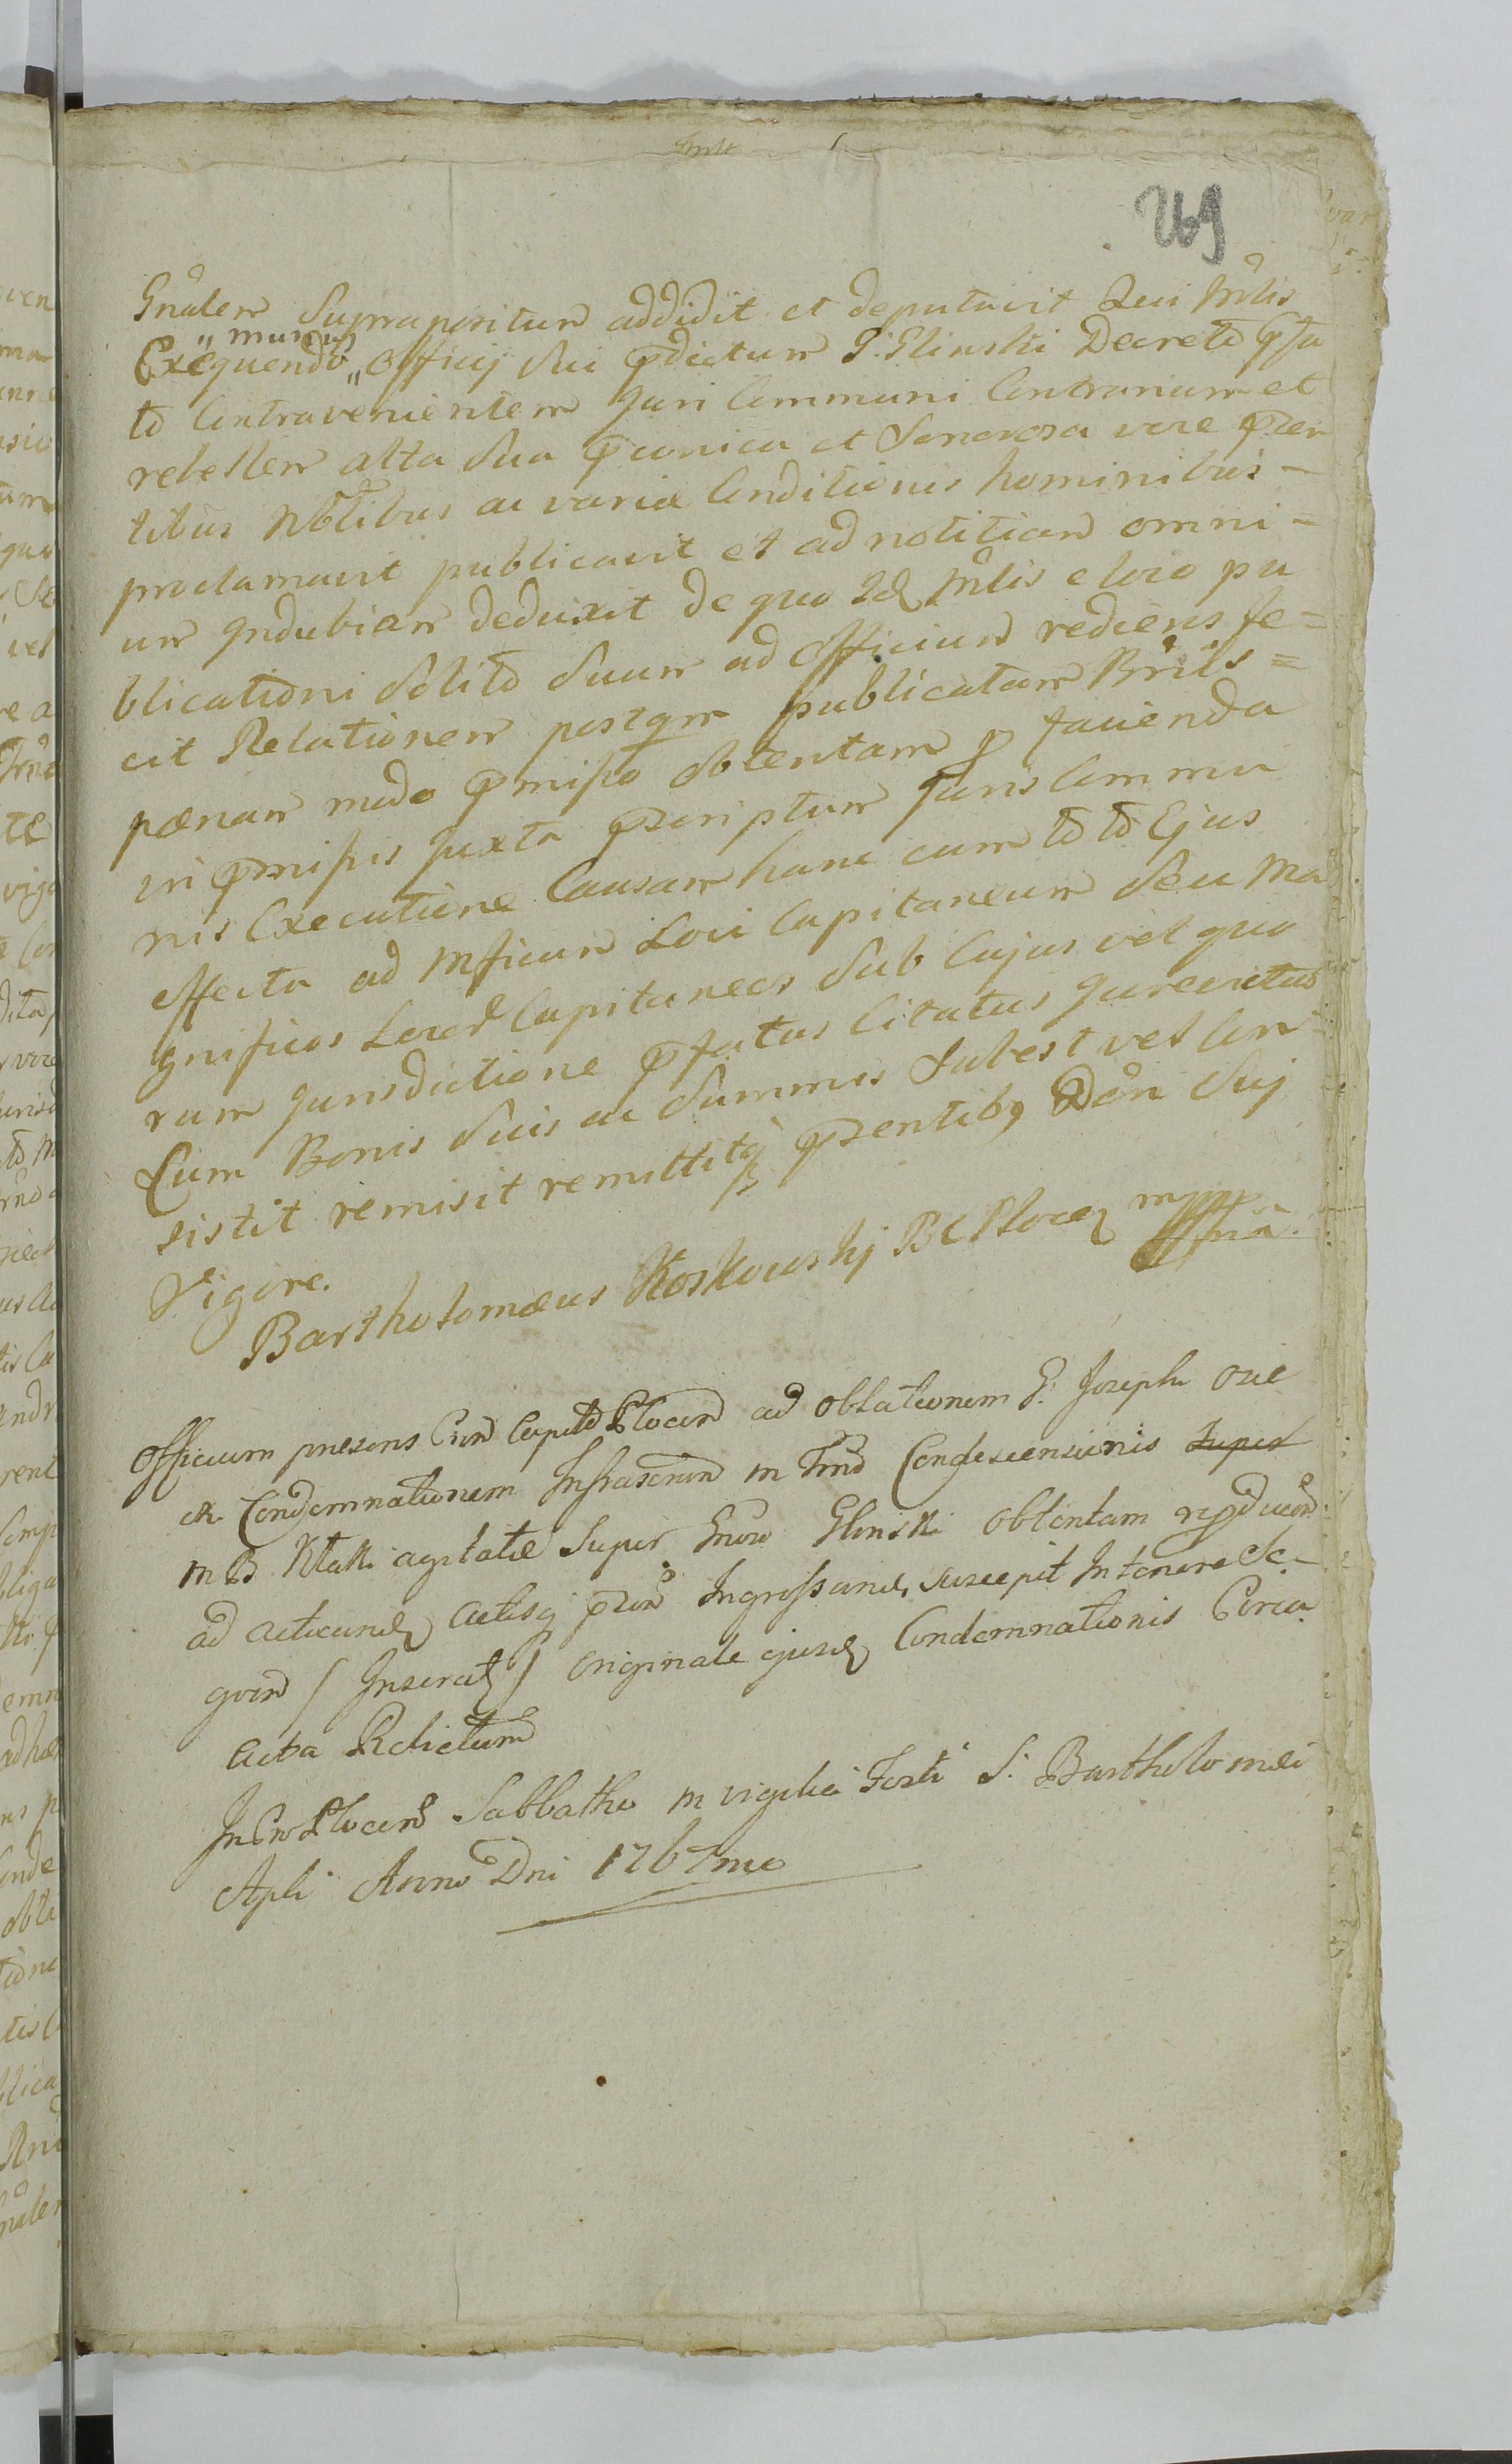 269
Gnalem Suprapositum addidit et deputavit Qui Mrlis
"munus
Exequendo „ Officij sui pdictum G: Glinski Decreto pfa
to Contravenientem Juri Communi Contrarium et
rebellem alta sua pconica et Sonorosa voce pzen
tibus Nobtibus ac variæ Conditionis hominibus –
proclamavit publicavit et ad notitiam omni =
um Indubiam deduxit de quo Id Mrlis e loco pu
blicationi solito suum ad Officium rediens fe =
cit Relationem postqm publicatam Bnils =
pœnam modo pmisso obtentam p facienda
in pmissis Juxta pscriptum Juris Commu
nis Executione Causam hanc cum to to Ejus
effectu ad Mficum Loci Capitaneum seu Ma
gnificos Locor Capitaneos sub Cujus vel quo
rum Jurisdictione pfatus Citatus Jurevictus
Cum Bonis Suis ac Summis Subest vel Con =
sistit remisit remittitq pzentibq Dcri Suj
Vigore.
Bartholomæus Koskowskj BC Plocen mpp
Officium præsens Cun Capitle Plocen ad oblationem G: Joseph
Condemnationem Infrascrum in Tmo Condescensionis super
in B Ktaki agitatæ Super Gnoso Glinski obtentam
ad acticand actisq pzon Ingrossand, suscepit In tenore
gvin / Inseratr / originale ejusd Condemnationis Circa
acta Relictum
In Cro Plocen Sabbatho in vigilia Festi S: Bartholomæi
Apli Anno Dni 1767mo